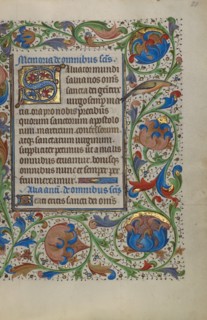 Memoria de omnibus scis
Saluator mundi
salua nos om̄s
sancta dei genitrix
uirgo semp ma
ria ora pro nobis precibus
quorum sanctorum apostolo
rum martirum confessorum
atq; sanctarum uirginum
suppliciter petimus ut a malis
omnibus eruamur bonisq;
omnibus nunc et semper per
frui mereamur.
Alia ant. de omnibus scis
sancti dei om̄s